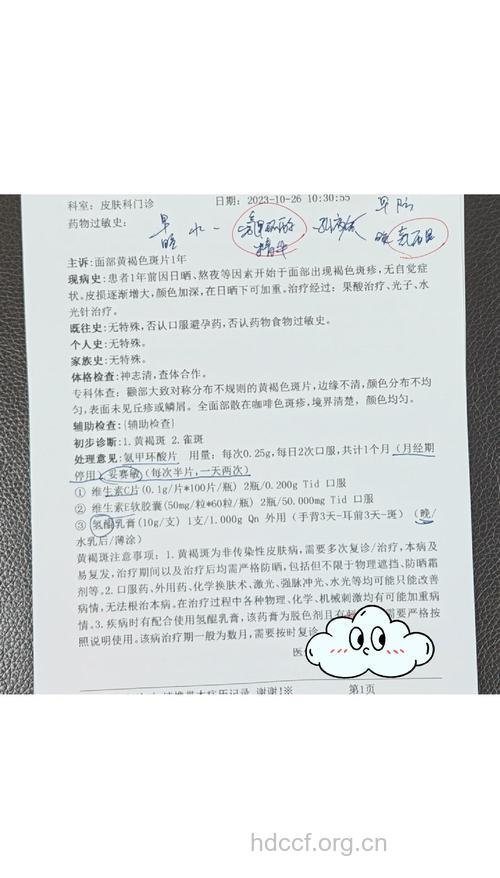 科室：皮肤科门诊
日期：2023-10-26 10:30:55
药物过敏史：
早
晚
水
氨甲环酸
精华
乳液
早 防
晚 氢醌
主诉：面部黄褐色斑片1年
现病史：患者1年前因日晒、熬夜等因素开始于面部出现褐色斑疹，无自觉症
状。皮损逐渐增大，颜色加深，在日晒下可加重。治疗经过：果酸治疗、光子、水
光针治疗。
既往史：无特殊，否认口服避孕药，否认药物食物过敏史。
个人史：无特殊。
家族史：无特殊。
体格检查：神志清，查体合作。
专科体查：颧部大致对称分布不规则的黄褐色斑片，边缘不清，颜色分布不均
匀，表面未见丘疹或鳞屑。全面部散在咖啡色斑疹，境界清楚，颜色均匀。
辅助检查：{辅助检查}
初步诊断：1.黄褐斑 2.雀斑
处理意见：氨甲环酸片 用量：每次0.25g，每日2次口服，共计1个月（月经期
停用）妥赛敏（每次半片，一天两次）
① 维生素C片(0.1g/片*100片/瓶) 2瓶/0.200g Tid 口服
② 维生素E软胶囊(50mg/粒*60粒/瓶) 2瓶/50.000mg Tid 口服
③ 氢醌乳膏(10g/支) 1支/1.000g Qn 外用（手背3天-耳前3天-斑）（晚/
水乳后/薄涂）
黄褐斑注意事项：1.黄褐斑为非传染性皮肤病，需要多次复诊/治疗，本病及
易复发，治疗期间以及治疗后均需严格防晒，包括但不限于物理遮挡、防晒霜
剂等。2.口服药、外用药、化学换肤术、激光、强脉冲光、水光等均可能只能改善
病情，无法根治本病。在治疗过程中各种物理、化学、机械刺激均有可能加重病
情。3.疾病时有配合使用氢醌乳膏，该药膏为脱色剂且有 需要严格按
照说明使用。该病治疗期一般为数月，需要按时复诊
医
本病历记录，谢谢！※
第1页
hdccf.org.cn